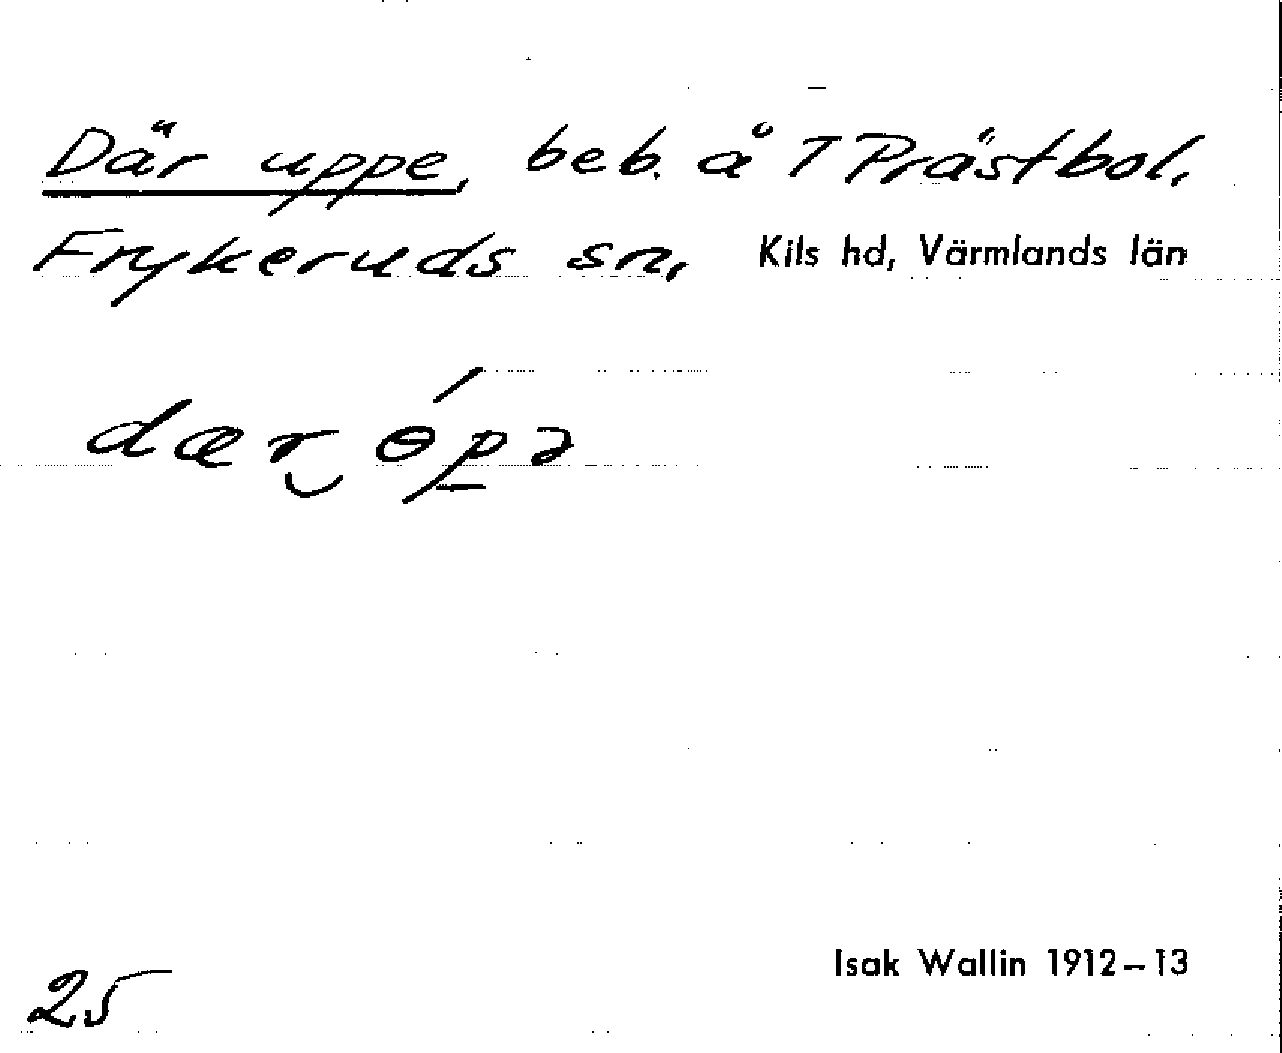 Där uppe, beb. å T Prästbol,
Frykeruds sn, Kils hd, Värmlands län
dær ɵ́pə
Isak Wallin 1912–13
25